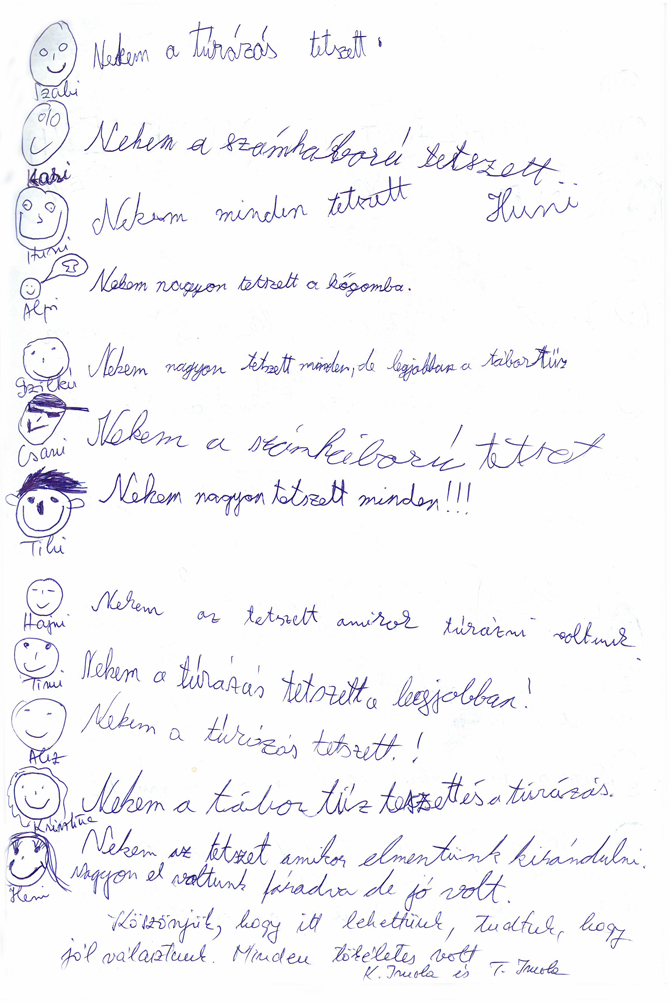 Nekem a túrázás tetszett.
Szabi
Nekem a számháború tetszett..
Kari
Nekem minden tetszett Huni
Huni
Nekem nagyon tetszett a kőgomba.
Alpi
Nekem nagyon tetszett minden, de legjobban a tábortűz
Szilkú
Nekem a számháború tetszet
Csani
Nekem nagyon tetszett minden!!!
Tihi
Nekem az tetszett amikor túrázni voltunk.
Hajni
Nekem a túrázás tetszett a legjobban!
Timi
Nekem a túrázás tetszett.!
Aliz
Nekem a tábor tűz teszett és a túrázás.
Krisztina
Nekem az tetszet amikor elmentünk kirándulni.
Nagyon el voltunk fáradva de jó volt.
Heni
Köszönjük, hogy itt lehettünk, tudtuk, hogy
jól választunk. Minden tökéletes volt
K. Imola és T. Imola